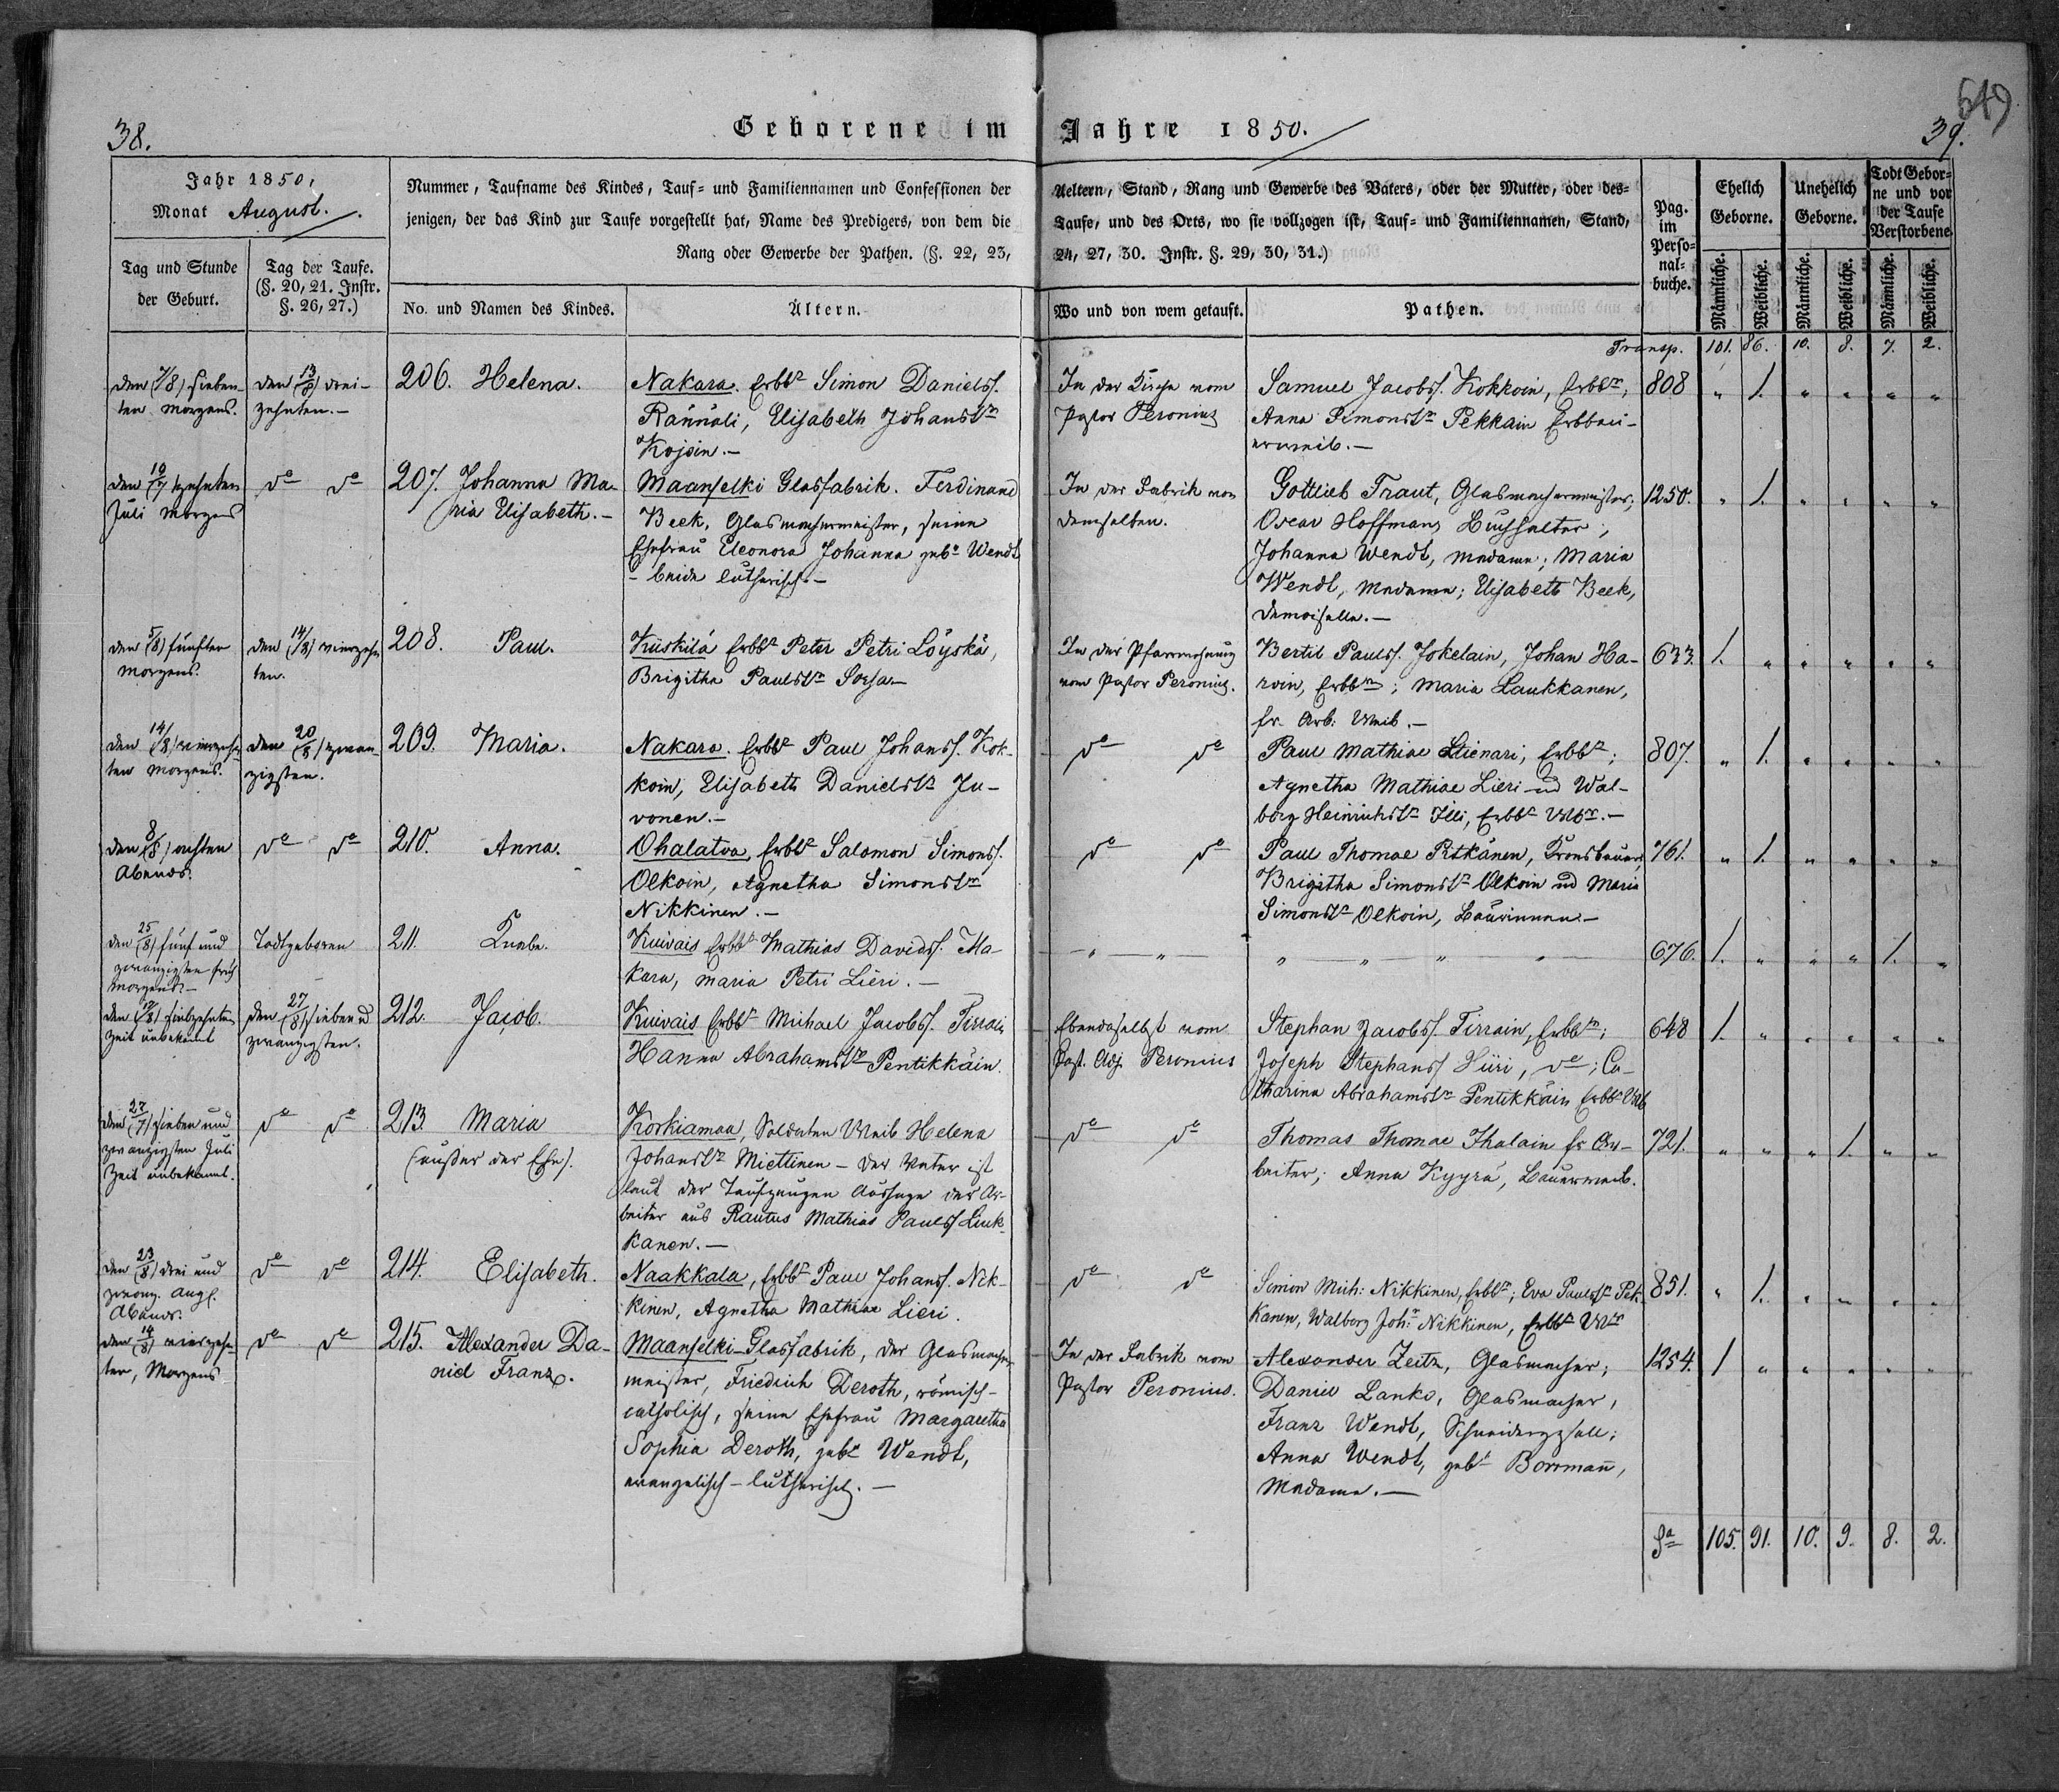 38.
Geborene im Jahre 1850.
649
39.
Jahr 1850,
Monat August.
Nummer, Taufname des Kindes, Tauf- und Familiennamen und Confessionen der
jenigen, der das Kind zur Taufe vorgestellt hat, Name des Predigers, von dem die
Rang oder Gewerbe der Pathen. (§. 22, 23,
Aeltern, Stand, Rang und Gewerbe des Vaters, oder der Mutter, oder des-
Taufe, und des Orts, wo sie vollzogen ist, Tauf- und Familiennamen, Stand,
24, 27, 30. Instr. §. 29, 30, 31.)
Pag.
im
Perso-
nal-
buche.
Ehelich
Geborne.
Unehelich
Geborne.
Todt Gebor-
ne und vor
der Taufe
Verstorbene
Tag und Stunde
der Geburt.
Tag der Taufe.
(§. 20, 21. Instr.
§. 26, 27.)
No. und Namen des Kindes.
Ältern.
Wo und von wem getauft.
Pathen.
Männliche.
Weibliche.
Männliche.
Weibliche.
Männliche.
Weibliche.
Transp. 101. 86. 10. 8. 7. 2.
den (7/8) sieben-
ten Morgens.
den (13/8) drei-
zehnten.—
206. Helena.
Nakara. Erbbr Simon Danielss.
Rännäli, Elisabeth Johanstr
Kojoin.—
In der Kirche vom
Pastor Peronius
Samuel Jacobss. Kokkoin, Erbbr;
Anna Simonstr Pekkain Erbbau-
erweib.—
808 " 1. " " " "
den (10/7) zehnten
Juli Morgens
do do
207. Johanna Ma-
ria Elisabeth.—
Maanselki Glasfabrik. Ferdinand
Beek, Glasmachermeister, seine
Ehefrau Eleonora Johanna geb. Wendt
– beide lutherisch.—
In der Fabrik von
demselben.
Gottlieb Traut, Glasmachermeister;
Oscar Hoffmann Buchhalter;
Johanna Wendt, Madame; Maria
Wendt, Madame; Elisabeth Beek,
Demoiselle.—
1250. " 1. " " " "
den (5/8) fünften
Morgens.
den (14/8) vierzehn
ten.
208. Paul.
Kuskilä Erbbr Peter Petri Löyskä,
Brigitha Paulstr Sorsa.—
In der Pfarrwohnung
vom Pastor Peronius.
Bertil Paulss. Jokelain, Johan Ha-
roin, Erbbr; Maria Laukkanen,
fr. Arb: Weib.—
633. 1. " " " " "
den (14/8) vierzehn
ten Morgens.
den (20/8) zwan-
zigsten.
209. Maria.
Nakara. Erbbr Paul Johanss. Kok-
koin, Elisabeth Danielstr Ju-
vonen.—
do do
Paul Mathiae Stienari, Erbbr;
Agnetha Mathiae Lieri und Wal-
borg Heinrichstr Illi, Erbbr Wbr.—
807. " 1. " " " "
den (8/8) achten
Abends.
do do
210. Anna.
Ohalatva, Erbbr Salomon Simonss.
Olkoin, Agnetha Simonstr
Nikkinen.—
do do
Paul Thomae Pitkänen, Kronsbauer,
Brigitha Simonstr Olkoin und Maria
Simonstr Olkoin, Bäurinnen.—
761. " 1. " " " "
den (25/8) fünf und
zwanzigsten früh
Morgens.—
Todtgeboren
211. Knabe.
Kuivais Erbbr Mathias Davidss. Ma-
kara, Maria Petri Lieri.—
— " — " —
" — " — " — " —
676. 1. " " " 1. "
den (17/8) siebzehnten
Zeit unbekannt
den (27/8) sieben u
zwanzigsten.
212. Jacob.
Kuivais Erbbr Michael Jacobss. Tirrain
Hanna Abrahamstr Pentikkäin.
Ebendaselbst vom
Past. Adj. Peronius
Stephan Jacobss. Tirrain, Erbbr;
Joseph Stephanss Hiiri, do; Ca-
tharina Abrahamstr Pentikkäin Erbbr Wb
648 1. " " " " "
den (27/7) sieben und
zwanzigsten Juli
Zeit unbekannt.
do do
213. Maria
(außer der Ehe).
Korkiamaa, Soldaten Weib Helena
Johanstr Miettinen – der Vater ist
laut der Taufzeugen Aussage der Ar-
beiter aus Rautus Mathias Paulss Luuk-
kanen.—
do do
Thomas Thomae Ihalain fr Ar-
beiter; Anna Kyyrä, Bauerweib.
721. " " " 1. " "
den (23/8) drei und
zwanz. Aug.
Abends.
do do
214. Elisabeth.
Naakkala, Erbbr Paul Johanss. Nik-
kinen, Agnetha Mathiae Lieri.
do do
Simon Mich: Nikkinen, Erbbr; Eva Paulstr Pek-
kanen, Walborg Joh: Nikkinen, Erbbr Wbr
851. " 1. " " " "
den (14/8) vierzehn
ten, Morgens
do do
215. Alexander Da-
niel Franz.
Maanselki-Glasfabrik, der Glasmacher-
meister, Friedrich Deroth, römisch-
catholisch, seine Ehefrau Margaretha
Sophia Deroth, geb. Wendt,
evangelisch-lutherisch.—
In der Fabrik vom
Pastor Peronius.
Alexander Zeitz, Glasmacher;
Daniel Lanko, Glasmacher,
Franz Wendt, Schneidergesell;
Anna Wendt, geb. Borrmann,
Madame.—
1254. 1 " " " " "
Sa 105. 91. 10. 9. 8. 2.